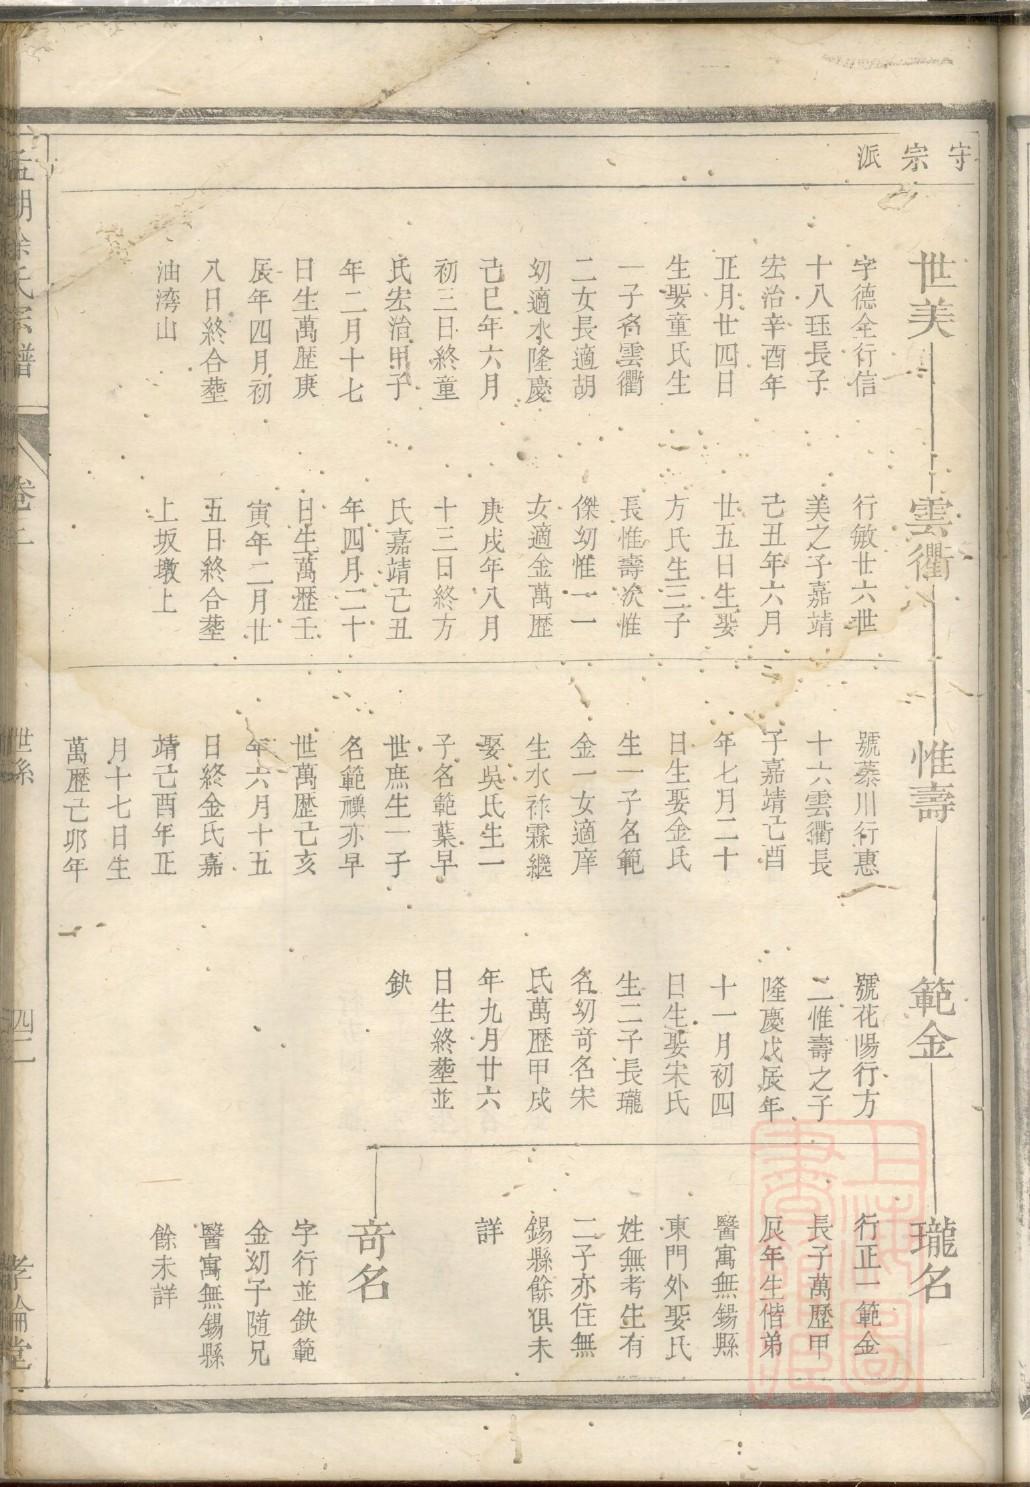 守宗派
世美
字德全行信
十八珏長子
宏治辛酉年
正月廿四日
生娶童氏生
一子名雲衢
二女長適胡
幼適水隆慶
己巳年六月
初三日終童
氏宏治甲子
年二月十七
日生萬歴庚
辰年四月初
八日終合塟
油湾山
雲衢
行敏廿六世
美之子嘉靖
己丑年六月
廿五日生娶
方氏生三子
長惟壽次惟
傑幼惟一一
女適金萬歴
庚戌年八月
十三日終方
氏嘉靖己丑
年四月二十
日生萬歴壬
寅年二月廿
五日終合塟
上坂墩上
惟壽
號慕川行惠
十六雲衢長
子嘉靖己酉
年七月二十
日生娶金氏
生一子名範
金一女適庠
生水祚霖繼
娶吳氏生一
子名範葉早
世庶生一子
名範禩亦早
世萬歴己亥
年六月十五
日終金氏嘉
靖己酉年正
月十七日生
萬歴己卯年
範金
號花陽行方
二惟壽之子
隆慶戊辰年
十一月初四
日生娶宋氏
生二子長瓏
名幼奇名宋
氏萬歴甲戌
年九月廿六
日生終塟並
缺
瓏名
行正一範金
長子萬歴甲
辰年生偕弟
醫寓無錫縣
東門外娶氏
姓無考生有
二子亦住無
錫縣餘俱未
詳
奇名
字行並缺範
金幼子隨兄
醫寓無錫縣
餘未詳
徐氏宗譜
卷二
世系
四二
孝倫堂
上海圖書館藏